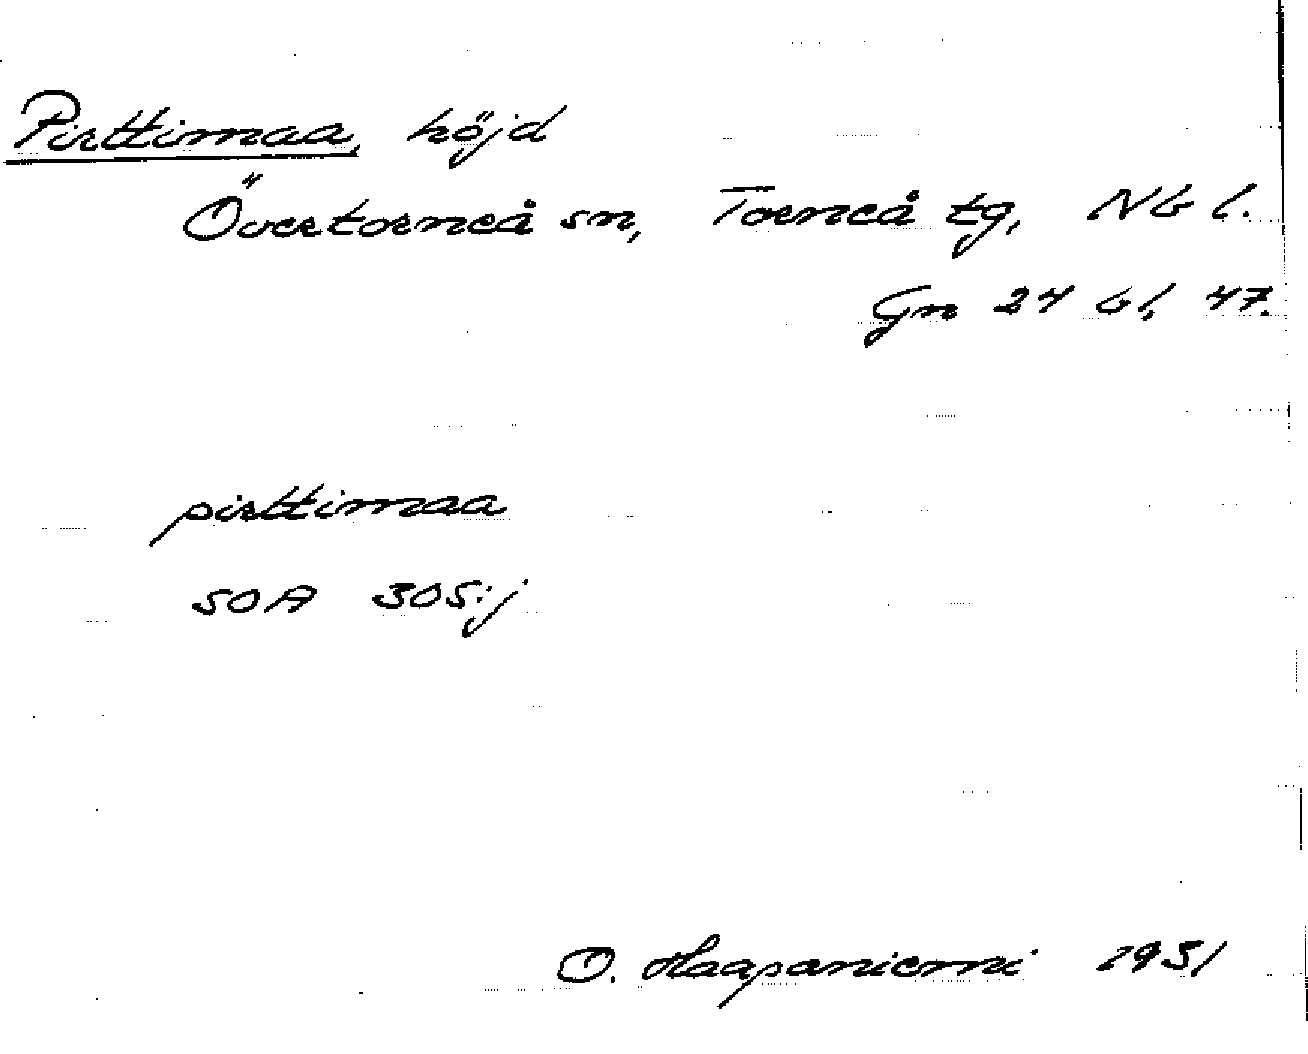 Pirttimaa, höjd
Övertorneå sn, Torneå tg, Nb l.
Gn 24 bl, 47.
pirttimaa
SOA 305:j
O. Haapaniemi 1931